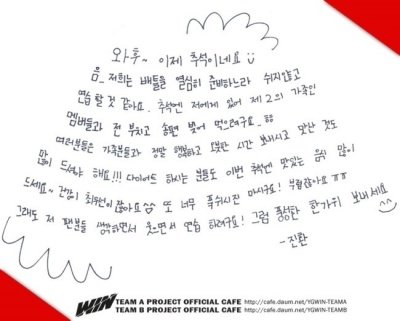 와후~ 이제 추석이네요
음.. 저희는 배틀을 열심히 준비하느라 쉬지않고
연습할 것 같아요. 추석엔 저에게 있어 제 2의 가족인
멤버들과 전 부치고 송편 빚어 먹으려구요..ㅎㅎ
여러분들은 가족분들과 정말 행복하고 오붓한 시간 보내시고 맛난 것도
많이 드셔야 해요!!! 다이어트 하시는 분들도 이번 추석엔 맛있는 음식 많이
드세요~ 건강이 최우선이잖아요^^ 또 너무 푹쉬시진 마시구요! 부럽잖아요ㅠㅠ
그래도 저 팬분들 생각하면서 웃으면서 연습 하려구요! 그럼 풍성한 한가위 보내세요
-진환
WIN TEAM A PROJECT OFFICIAL CAFE http://cafe.daum.net/YGWIN-TEAMA
TEAM B PROJECT OFFICIAL CAFE http://cafe.daum.net/YGWIN-TEAMB